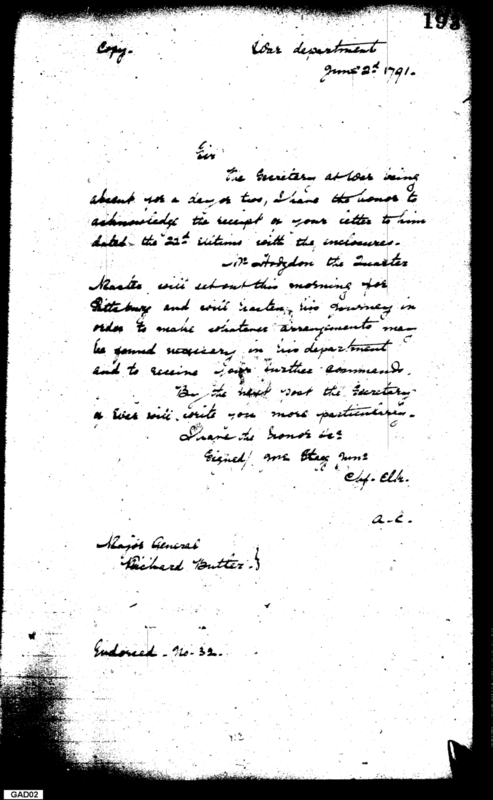 193
Copy.
War department
June 2d. 1791.
Sir
The Secretary at War being
absent for a day or two, I have the honor to
acknowledge the receipt of your letter to him
dated the 22d Ultimo with the inclosures.
Mr Hodgdon the Quarter
Master will set out this morning for
Pittsburg and will hasten his journey in
order to make whatever arrangements may
be found necessary in his department
and to receive your further commands.
By the next post the Secretary
of War will write you more particularly.
I have the honor &c
Signed/ Jno Stagg Junr
Chf. Clk.
A.C.
Major General
Richard Butler.}
Endorsed - No. 32.
GAD02